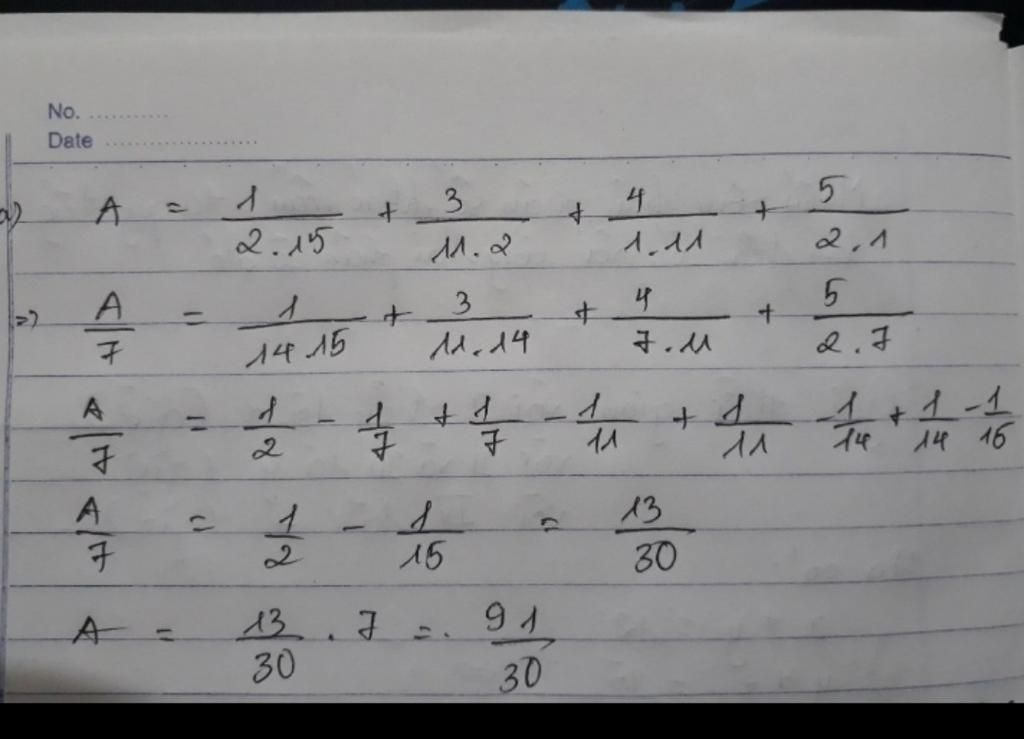 No. ...........
Date .....................
a) A = 1/2.15 + 3/11.2 + 4/1.11 + 5/2.1
=> A/7 = 1/14.15 + 3/11.14 + 4/7.11 + 5/2.7
A/7 = 1/2 - 1/7 + 1/7 - 1/11 + 1/11 - 1/14 + 1/14 - 1/15
A/7 = 1/2 - 1/15 = 13/30
A = 13/30 . 7 = . 91/30